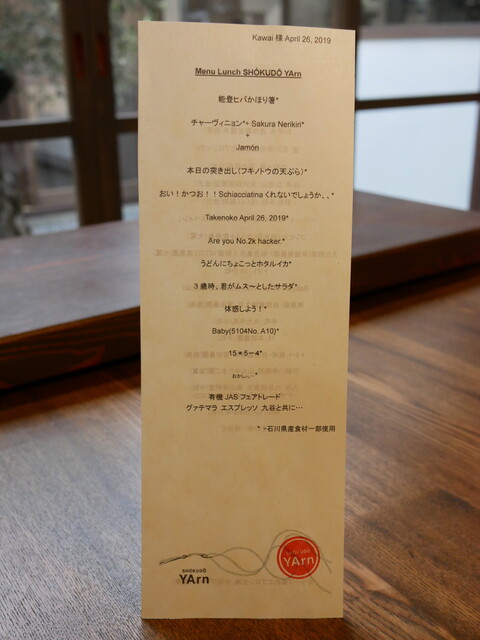 Kawai 様 April 26, 2019
Menu Lunch SHŌKUDŌ YArn
能登ヒバかほり箸*
チャーヴィニョン*+ Sakura Nerikiri*
+
Jamón
本日の突き出し（フキノトウの天ぷら）*
おい！かつお！！Schiacciatina くれないでしょうか、、*
Takenoke April 26, 2019*
Are you No.2k hacker.*
うどんにちょこっとホタルイカ*
３歳時、君がムス～としたサラダ*
体感しよう！*
Baby(5104No. A10)*
15＊5－4*
有機 JAS フェアトレード
グァテマラ エスプレッソ 九谷と共に…
*＝石川県産食材一部使用
SHŌKUDŌ
YArn
SHŌKUDŌ
YArn